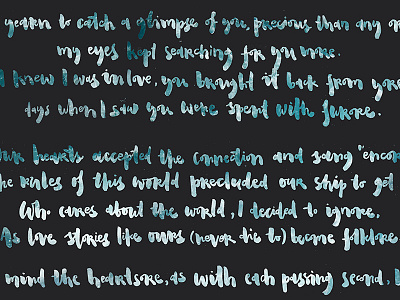 yearn to catch a glimpse of you, precious than any or
my eyes kept searching for you more.
I knew I was in love, you brought it back from yore
days when I saw you were spent with furore.
ur hearts accepted the connection and sang "encor
he rules of this world precluded our ship to get
Who cares about the world, I decided to ignore,
As love stories like ours (never die to) became folklore.
mind the heartsore, as with each passing second, I